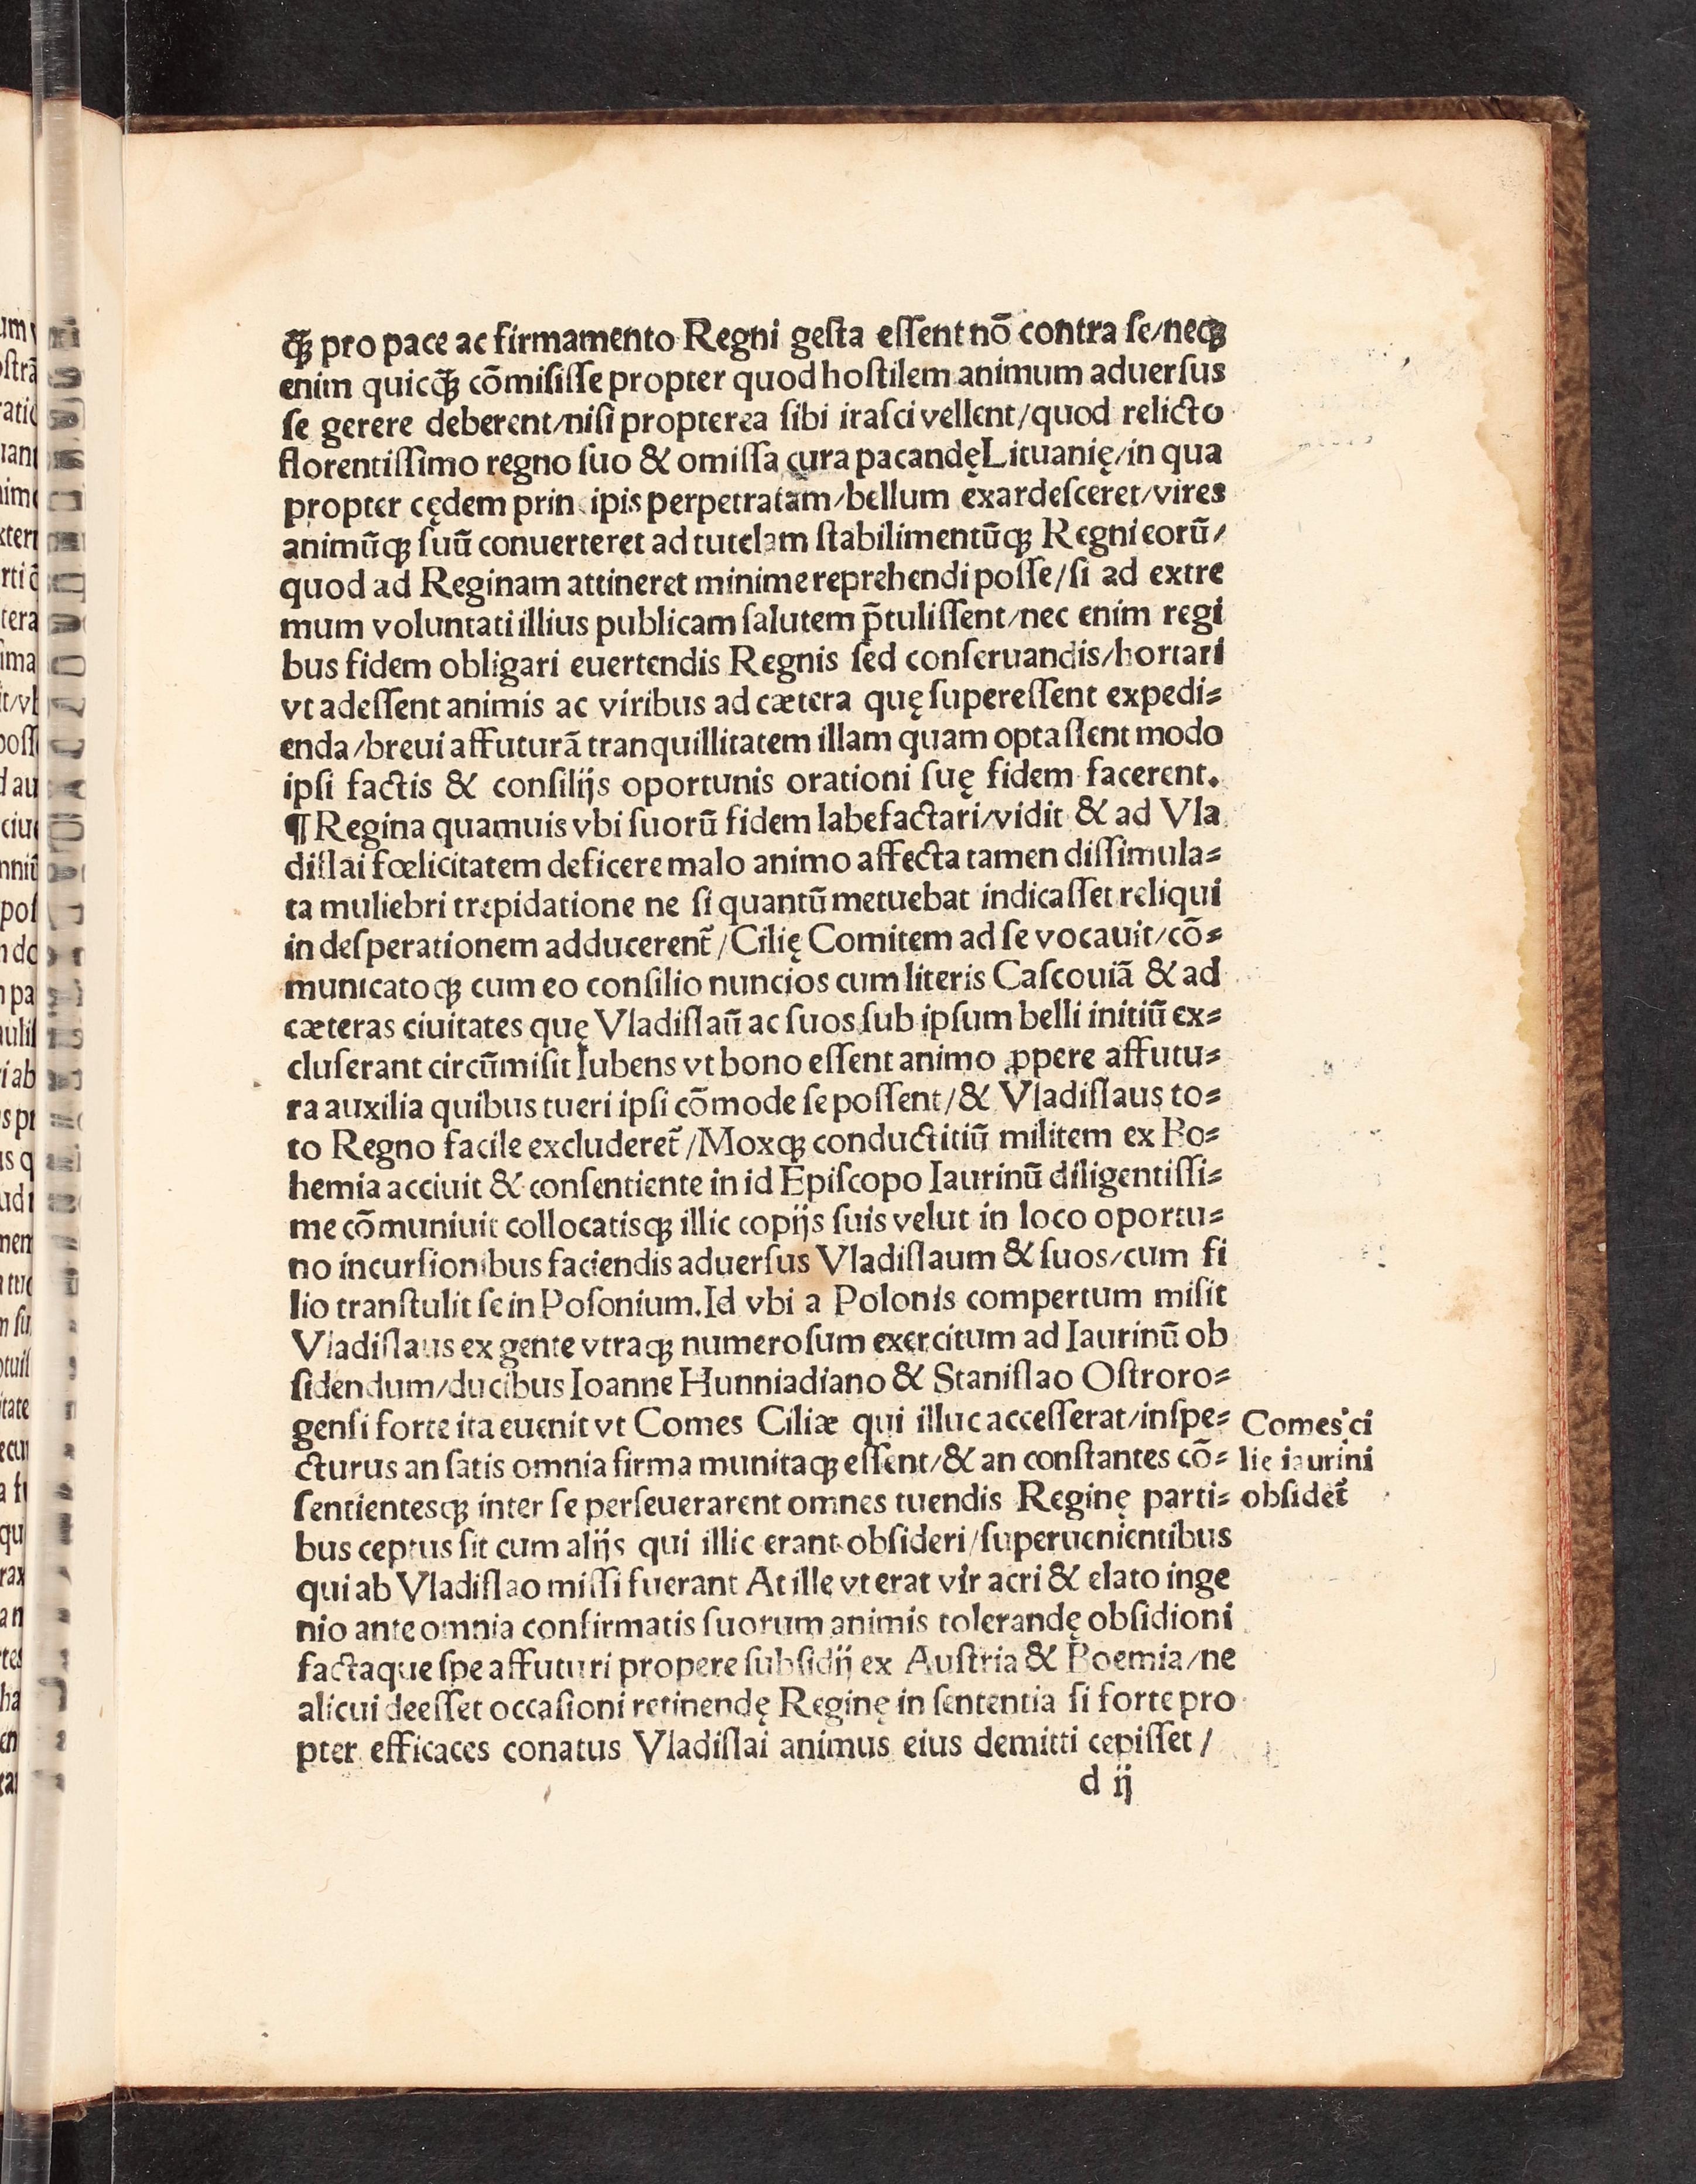 ꝙ̄ pro pace ac firmamento Regni geſta eſſent nō contra ſe/neqꝫ
enim quicꝙ̄ cōmiſiſſe propter quod hoſtilem animum aduerſus
ſe gerere deberent/niſi propterea ſibi iraſci vellent/quod relicto
florentiſſimo regno ſuo & omiſſa cura pacandę Lituanię/in qua
propter cędem principis perpetratam/bellum exardeſceret/vires
animūqꝫ ſuū conuerteret ad tutelam ſtabilimentūqꝫ Regni eorū/
quod ad Reginam attineret minime reprehendi poſſe/ſi ad extre
mum voluntati illius publicam ſalutem p̄tuliſſent/nec enim regi
bus fidem obligari euertendis Regnis ſed conſeruandis/hortari
vt adeſſent animis ac viribus ad cætera quę ſupereſſent expedi⸗
enda/breui affuturā tranquillitatem illam quam optaſſent modo
ipſi factis & conſilijs oportunis orationi ſuę fidem facerent.
¶ Regina quamuis vbi ſuorū fidem labefactari/vidit & ad Vla
diſlai fœlicitatem deficere malo animo affecta tamen diſſimula⸗
ta muliebri trepidatione ne ſi quantū metuebat indicaſſet reliqui
in deſperationem adducerent̃/Cilię Comitem ad ſe vocauit/cō⸗
municatoqꝫ cum eo conſilio nuncios cum literis Caſcouiā & ad
cæteras ciuitates quę Vladiſlaū ac ſuos ſub ipſum belli initiū ex⸗
cluſerant circūmiſit Iubens vt bono eſſent animo ꝓpere affutu⸗
ra auxilia quibus tueri ipſi cōmode ſe poſſent/& Vladiſlaus to⸗
to Regno facile excluderet̃/Moxqꝫ conductitiū militem ex Bo⸗
hemia acciuit & conſentiente in id Epiſcopo Iaurinū diligentiſſi⸗
me cōmuniuit collocatisqꝫ illic copijs ſuis velut in loco oportu⸗
no incurſionibus faciendis aduerſus Vladiſlaum & ſuos/cum fi
lio tranſtulit ſe in Poſonium. Id vbi a Polonis compertum miſit
Vladiſlaus ex gente vtraqꝫ numeroſum exercitum ad Iaurinū ob
ſidendum/ducibus Ioanne Hunniadiano & Staniſlao Oſtroro⸗
genſi forte ita euenit vt Comes Ciliæ qui illuc acceſſerat/inſpe⸗
cturus an ſatis omnia firma munitaqꝫ eſſent/& an conſtantes cō⸗
ſentientesqꝫ inter ſe perſeuerarent omnes tuendis Reginę parti⸗
bus ceptus ſit cum alijs qui illic erant obſideri/ſuperuenientibus
qui ab Vladiſlao miſſi fuerant At ille vt erat vir acri & elato inge
nio ante omnia confirmatis ſuorum animis tolerandę obſidioni
factaque ſpe affuturi propere ſubſidij ex Auſtria & Boemia/ne
alicui deeſſet occaſioni retinendę Reginę in ſententia ſi forte pro
pter efficaces conatus Vladiſlai animus eius demitti cepiſſet/
d ij
Comes ci
lie iaurini
obſidet̃